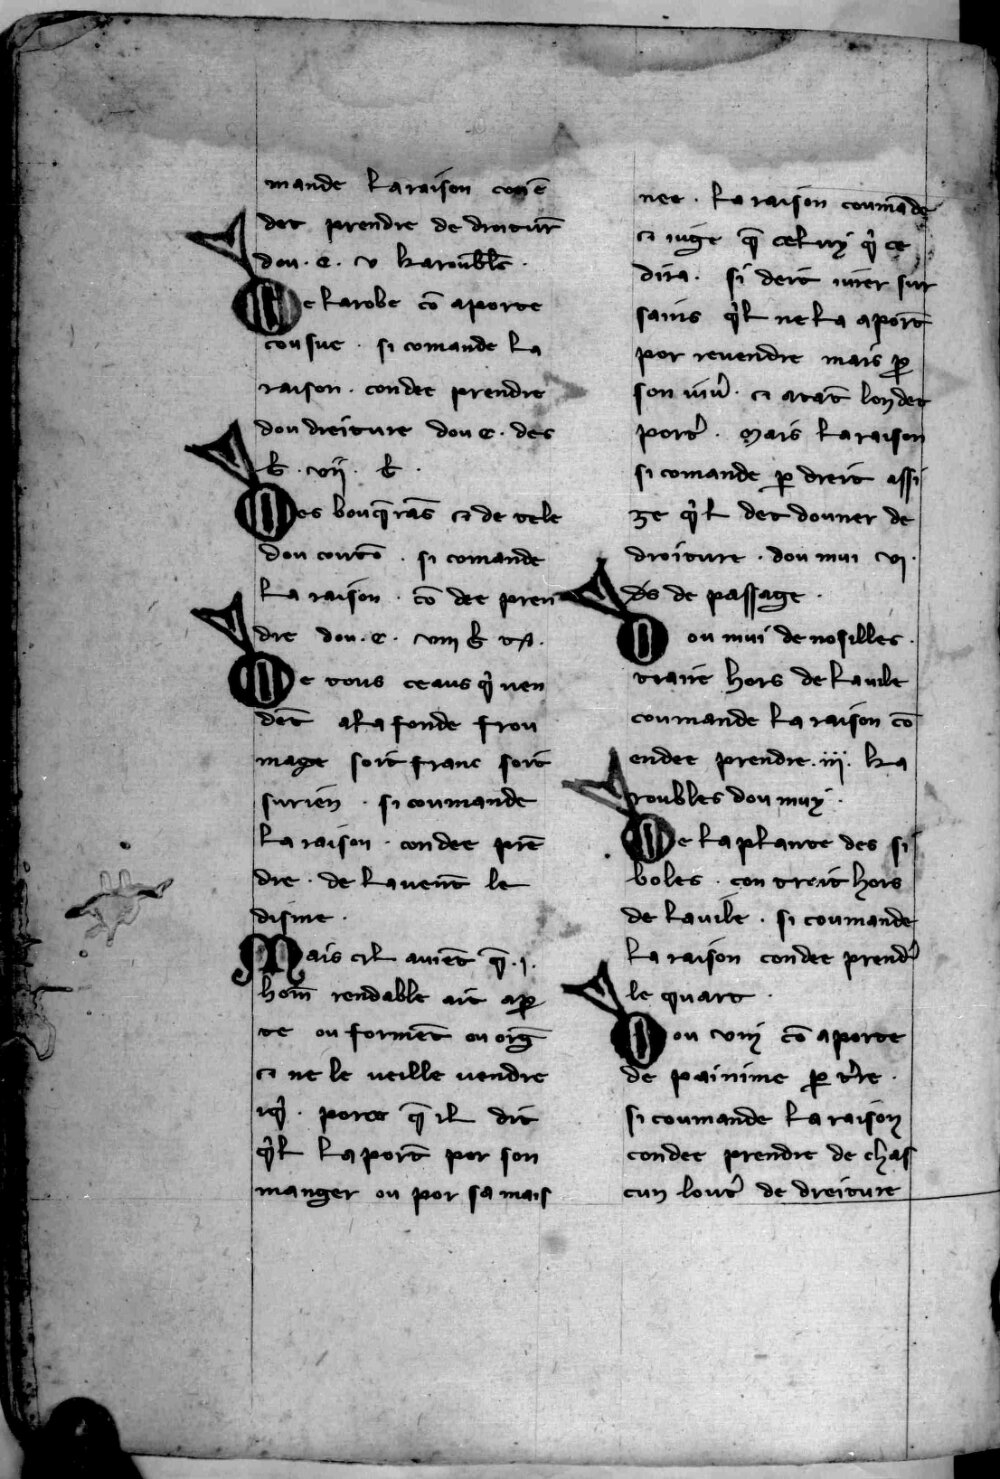 mande la raison con ē
det prendre de dreitur̄
dou · c · v karoubl̄es ·
De karobe cō aporte
con sue · si comande la
raison · con dee prendre
dou dreiture dou c · des
k̄ · vii · k̄ ·
Des bouq̄rās ⁊ de tele
dou cortō · si comande
la raison · cō dee pren
dre dou · c · viii k̄
De tous ceaus q̇ uen
dēt a la fonde frou
mage soit franc soit
surien · si coumande
la raison · con dee prē
dre · de la uent̄ le
disme ·
Mais cil auiēt q̄ · i ·
hom̄ rendable ait apꝑ
te ou formēt ou orḡ
⁊ ne le ueille uendre
iq̇ · porce q̄ il dit
q̇l laport̄ por son
manger ou por sa mais
nee · la raison coumāde
⁊ iuge q̄ celuy q̇ ce
dira · si deit iurer sur
sains q̇l ne la aport̄
por reuendre mais ꝑ
son uiu̾ · ⁊ atāt lon det
port̾ · Mais la raison
si comande ꝑ dreit assi
ze q̇l det donner de
droiture · dou mui vi ·
ds̄ de passage ·
Dou mui de nosilles ·
traire hors de la uile
coumande la raison cō
en dee prendre · iii · ka
roubles dou muy ·
De la plante des si
boles · con treit hors
de la uile · si coumande
la raison con dee prend̾
le quart ·
Dou vin cō aporte
de painime ꝑ t̾re ·
si coumande la raison
con dee prendre de chas
cun lout̾ de dreiture